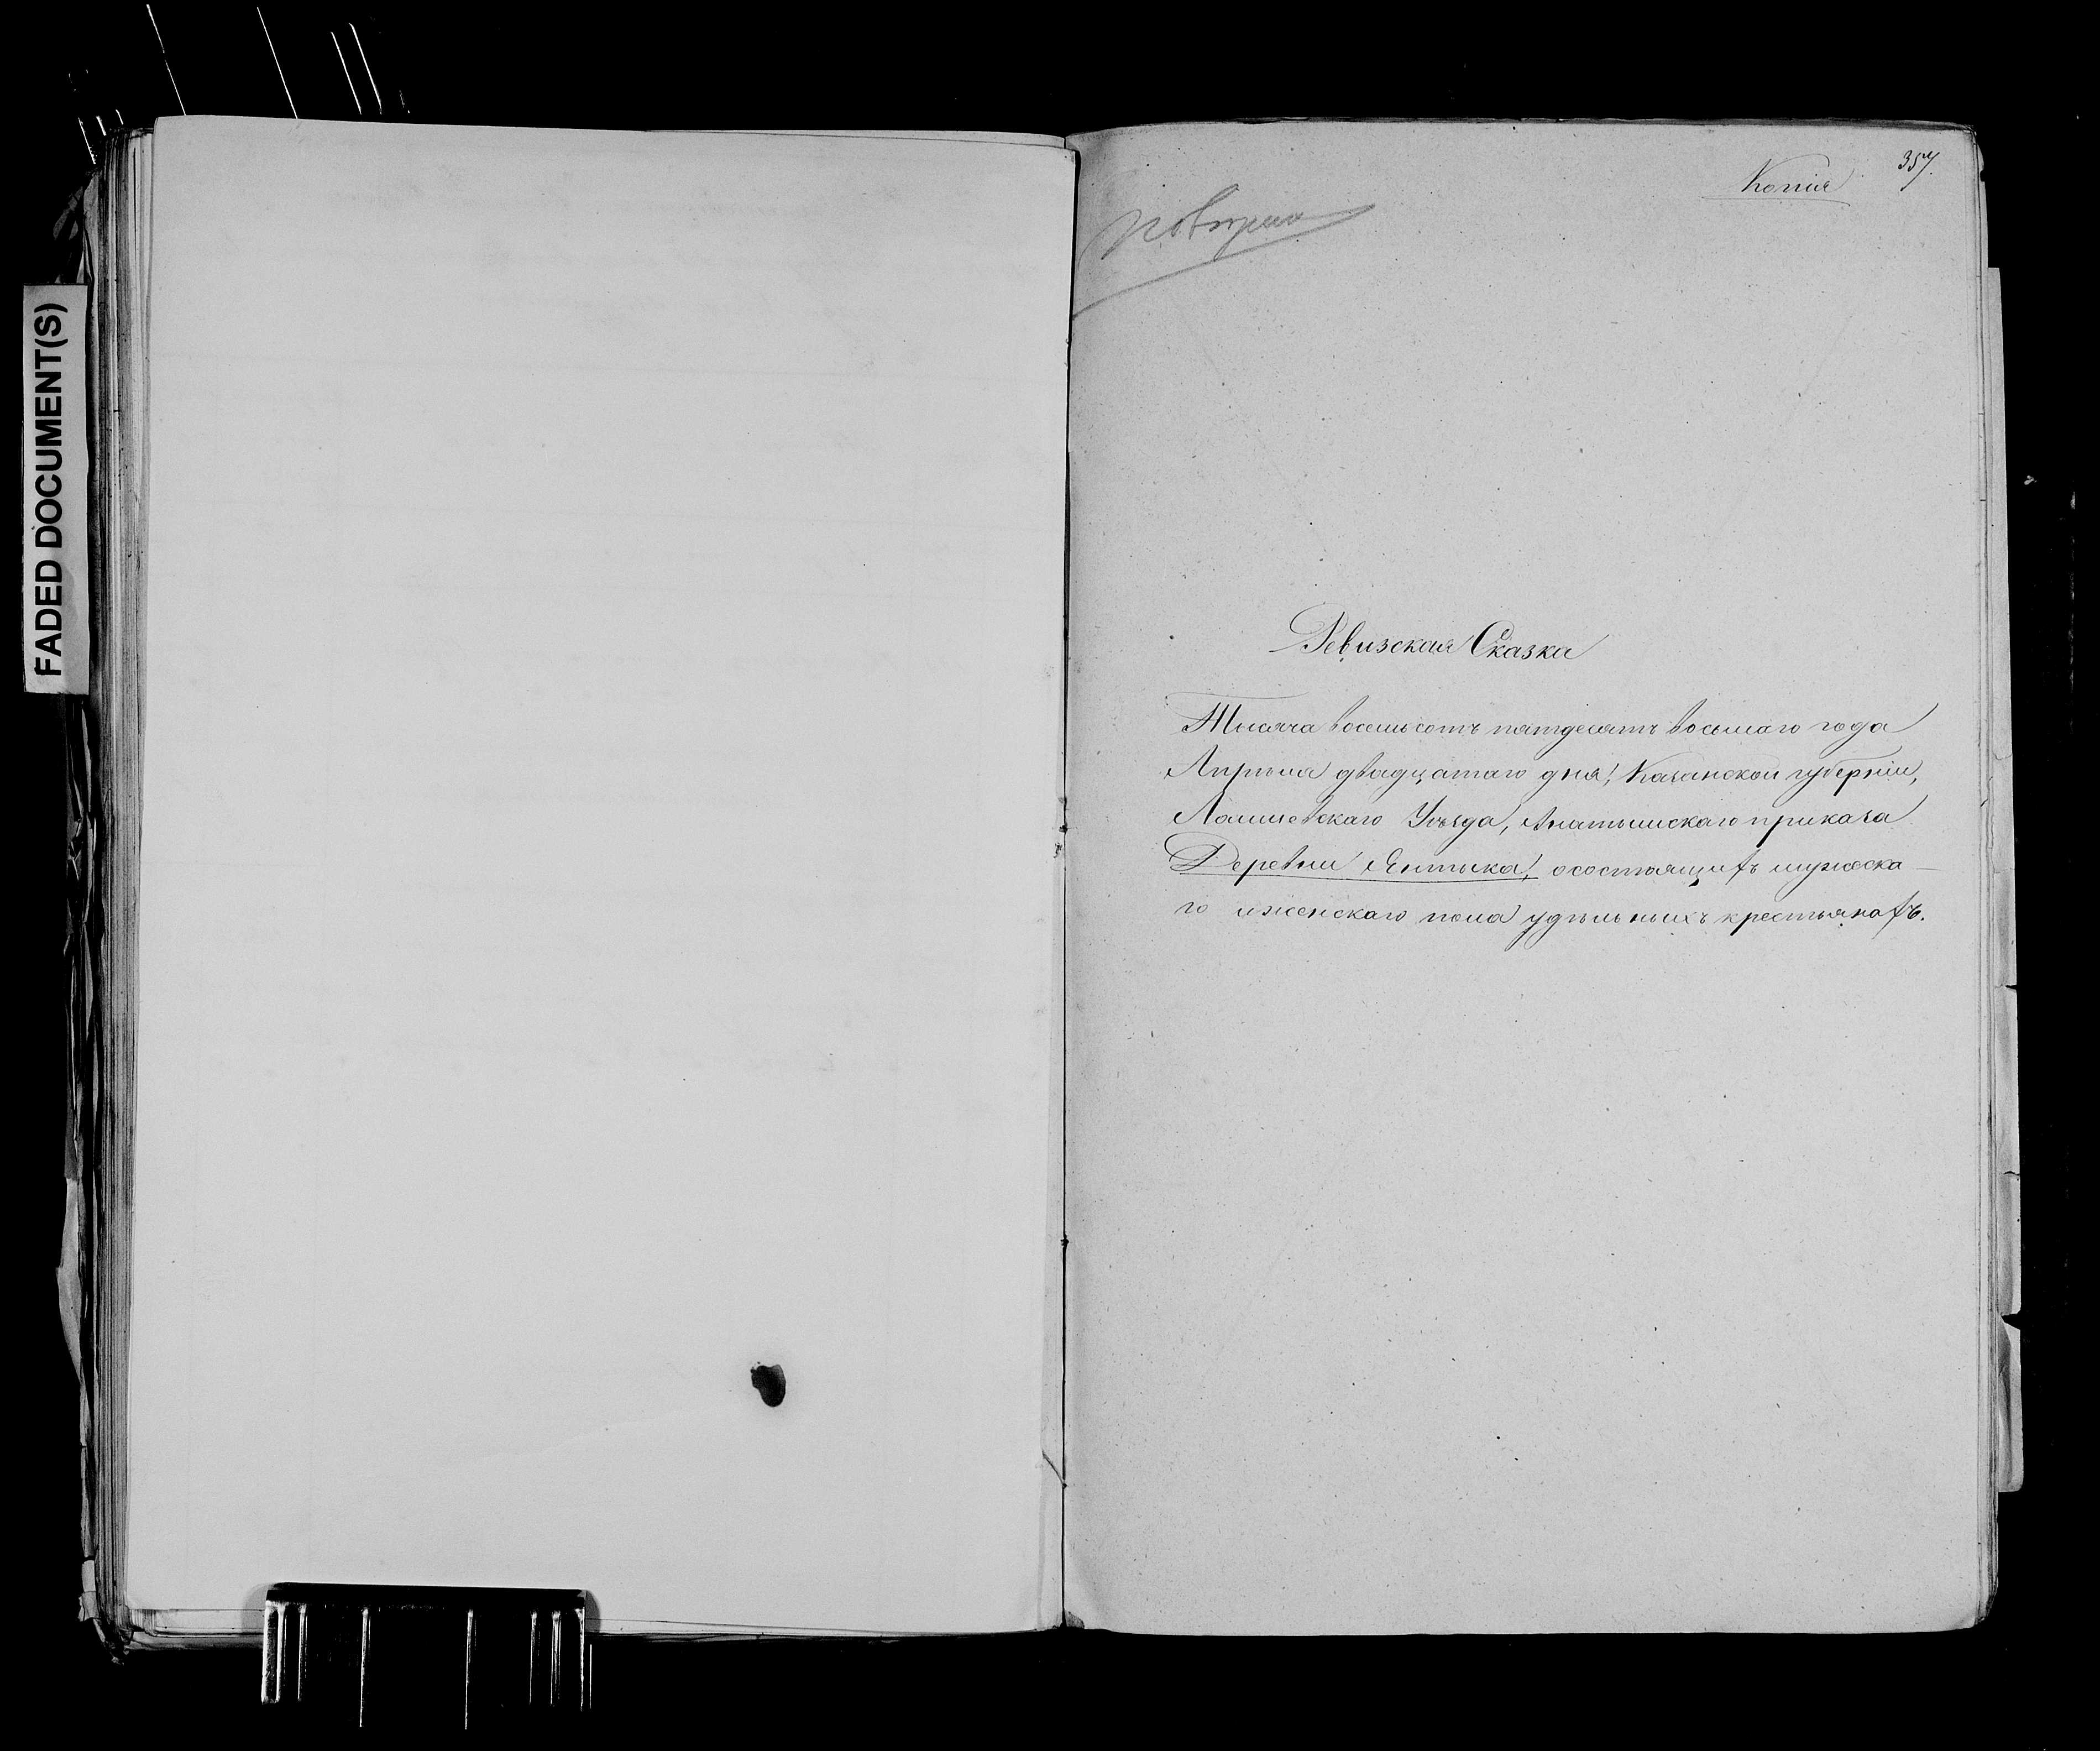 FADED DOCUMENT(S)
357.
Копія
Ревизская Сказка
Тысяча восемьсотъ пятдесятъ восьмаго года
Апрѣля двадцатаго дня, Казанской губерніи,
Лаишевскаго Уѣзда, Анатышскаго приказа
Деревни Янтыка, осостоящихъ мужеска-
го иженскаго пола удѣльныхъ крестьянахъ.